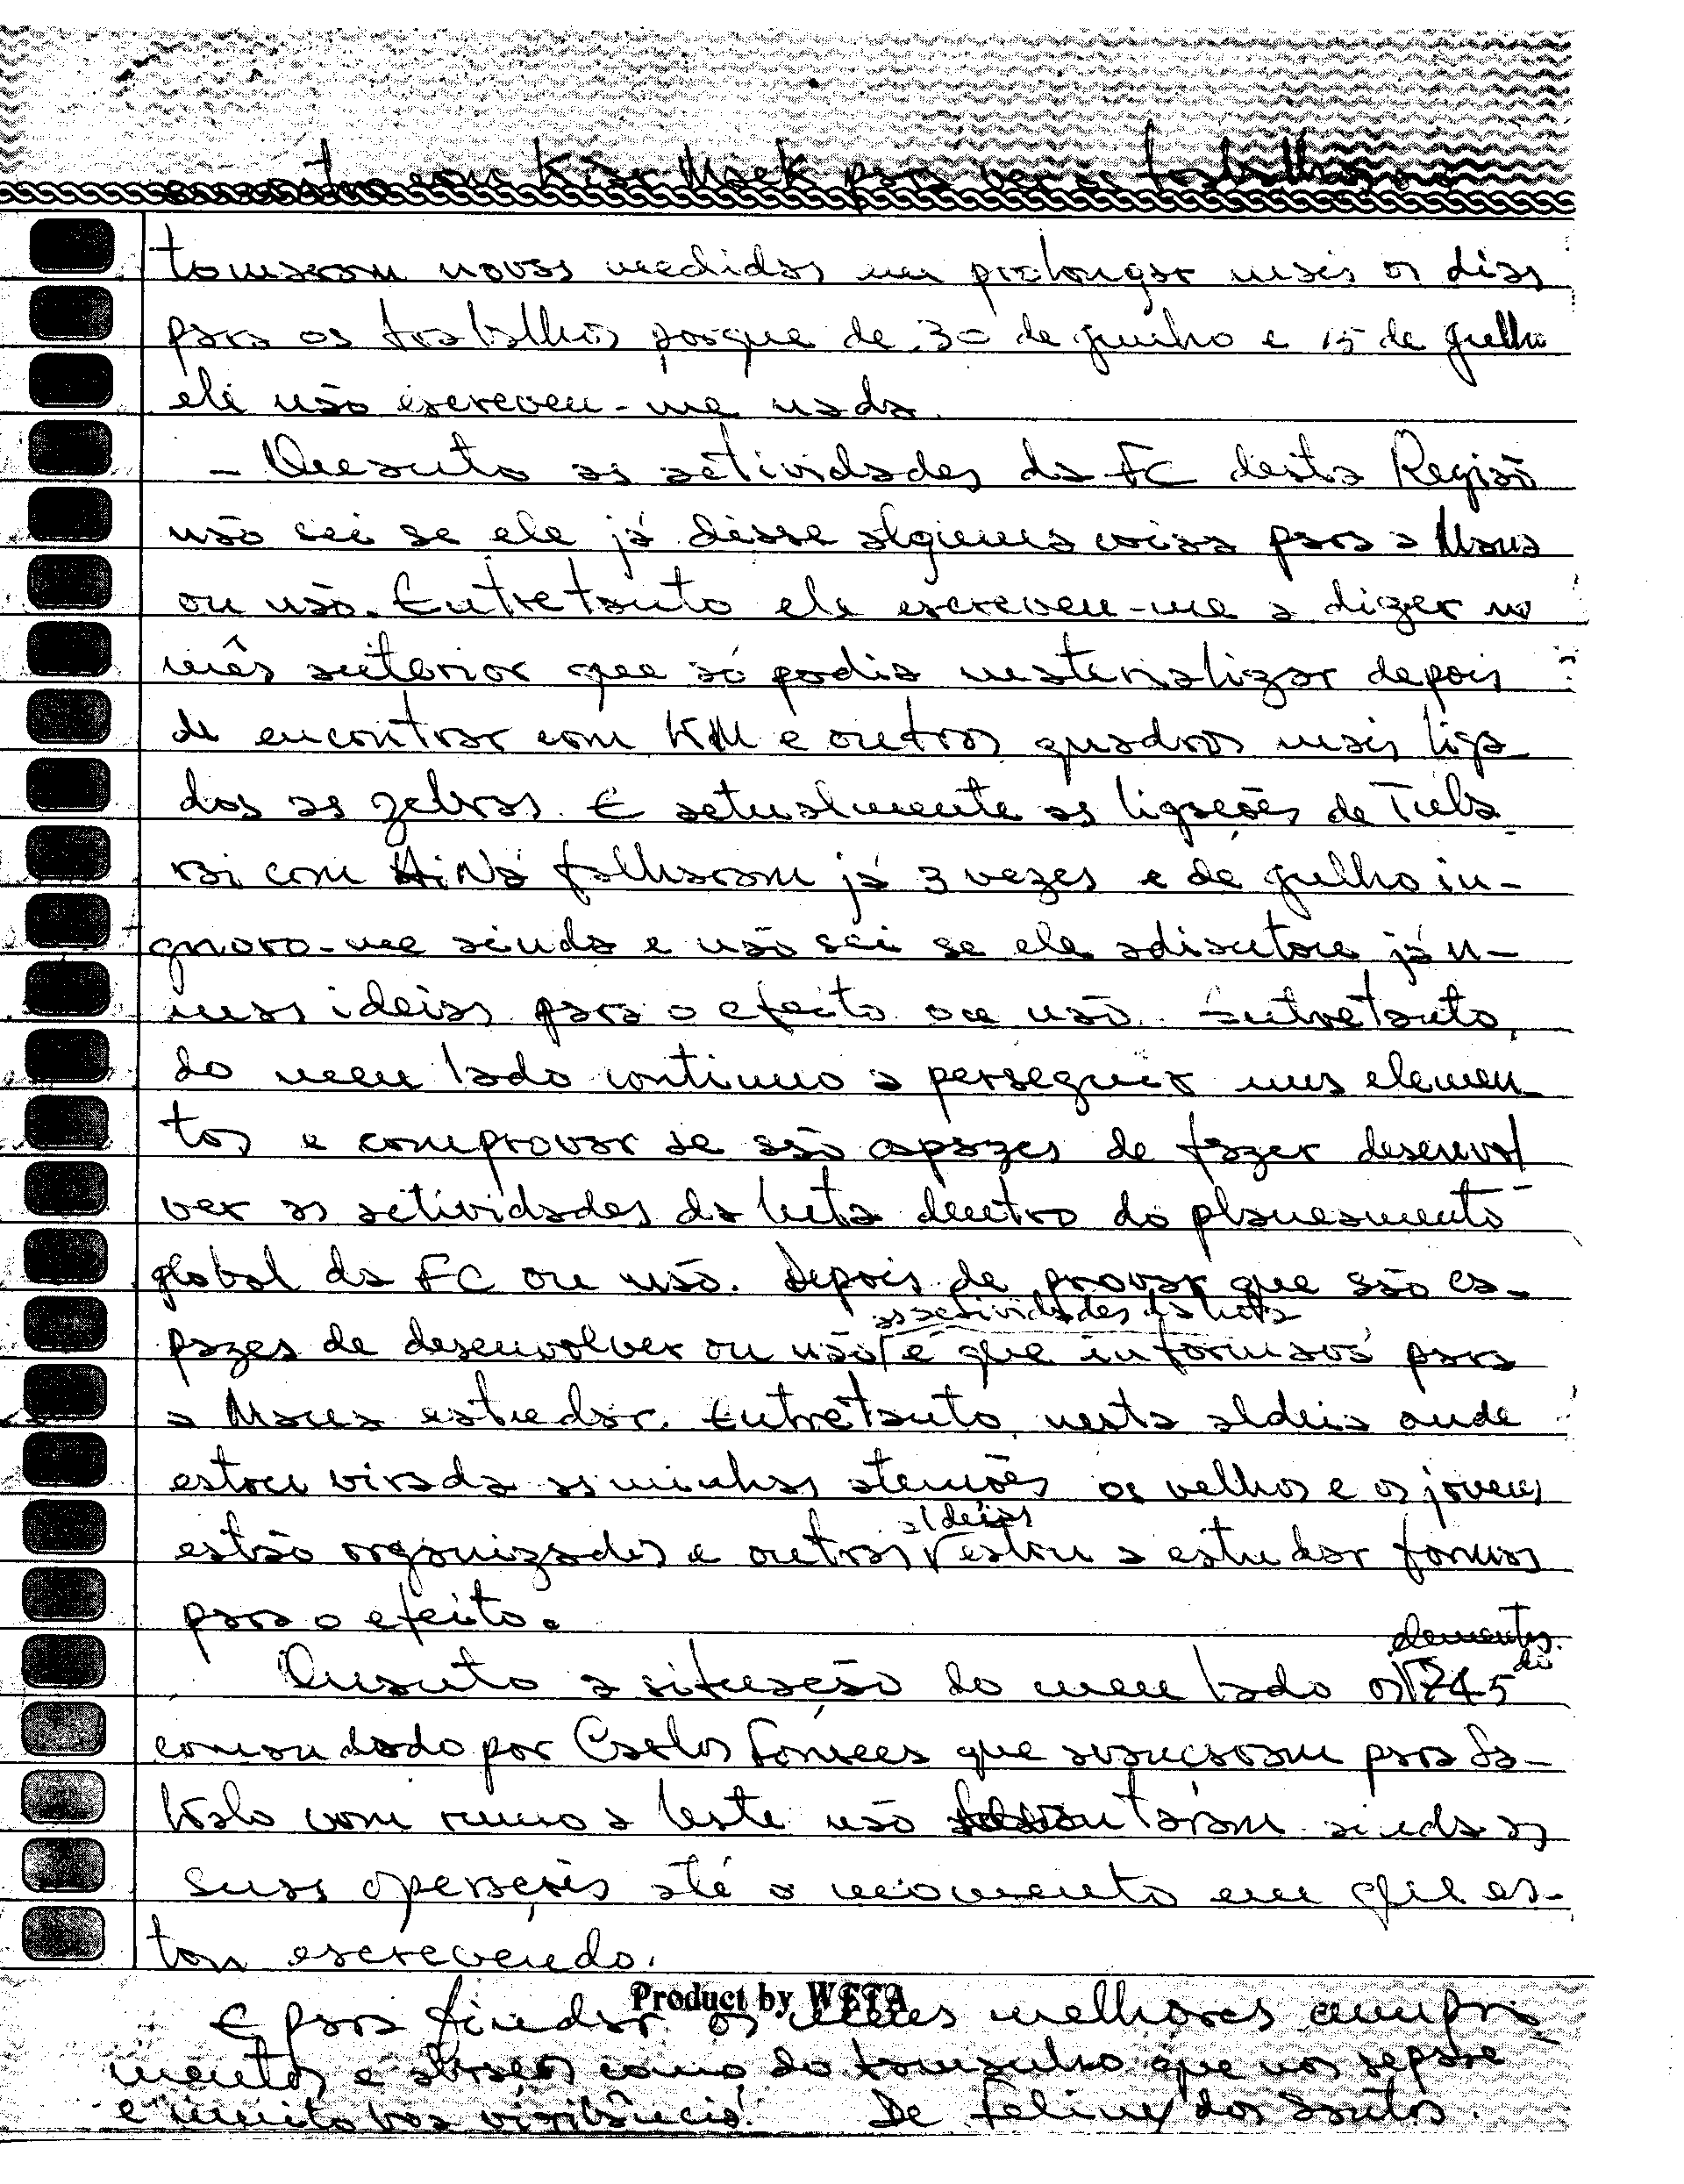 encontro com Kiar Maek para ver os trabalhos
tomaram novas medidas em prolongar mais os dias
para os trabalhos porque de 30 de junho e 15 de julho
ele não escreveu-me nada.
- Quanto as actividades da FC desta Região
não sei se ele já disse alguma coisa para a Mana
ou não. Entretanto ele escreveu-me a dizer no
mês anterior que só podia materializar depois
de encontrar com KM e outros quadros mais liga-
dos as zebras. E actualmente as ligações de Tuba
rai com AiNá falharam já 3 vezes e de julho in-
gnoro-me ainda e não sei se ele adisutou já n-
mas ideias para o efeito ou não. Entretanto,
do meu lado continuo a perseguir uns elemen-
tos e comprovar se são capazes de fazer desenvol
ver as actividades da luta dentro do planeamento
global da FC ou não. Depois de provar que são ca-
as actividades da luta
pazes de desenvolver ou não é que informará para
a Mana estudar. Entretanto, nesta aldeia onde
estou virada as minhas atenções os velhos e os jovens
aldeias
estão organizados e outras estou a estudar formas
para o efeito.
elementos
Quanto a situação do meu lado os 745 de
comandado por Carlos Fonseca que avançaram para
com rumo a leste não levantaram ainda as
suas operações até o momento em que es-
tou escrevendo.
Product by WETA
E para findar os meus melhores cumpri
mentos e abraços como do tamanho que nos separe
e muito boa vigilância! De Felinx dos Santos.